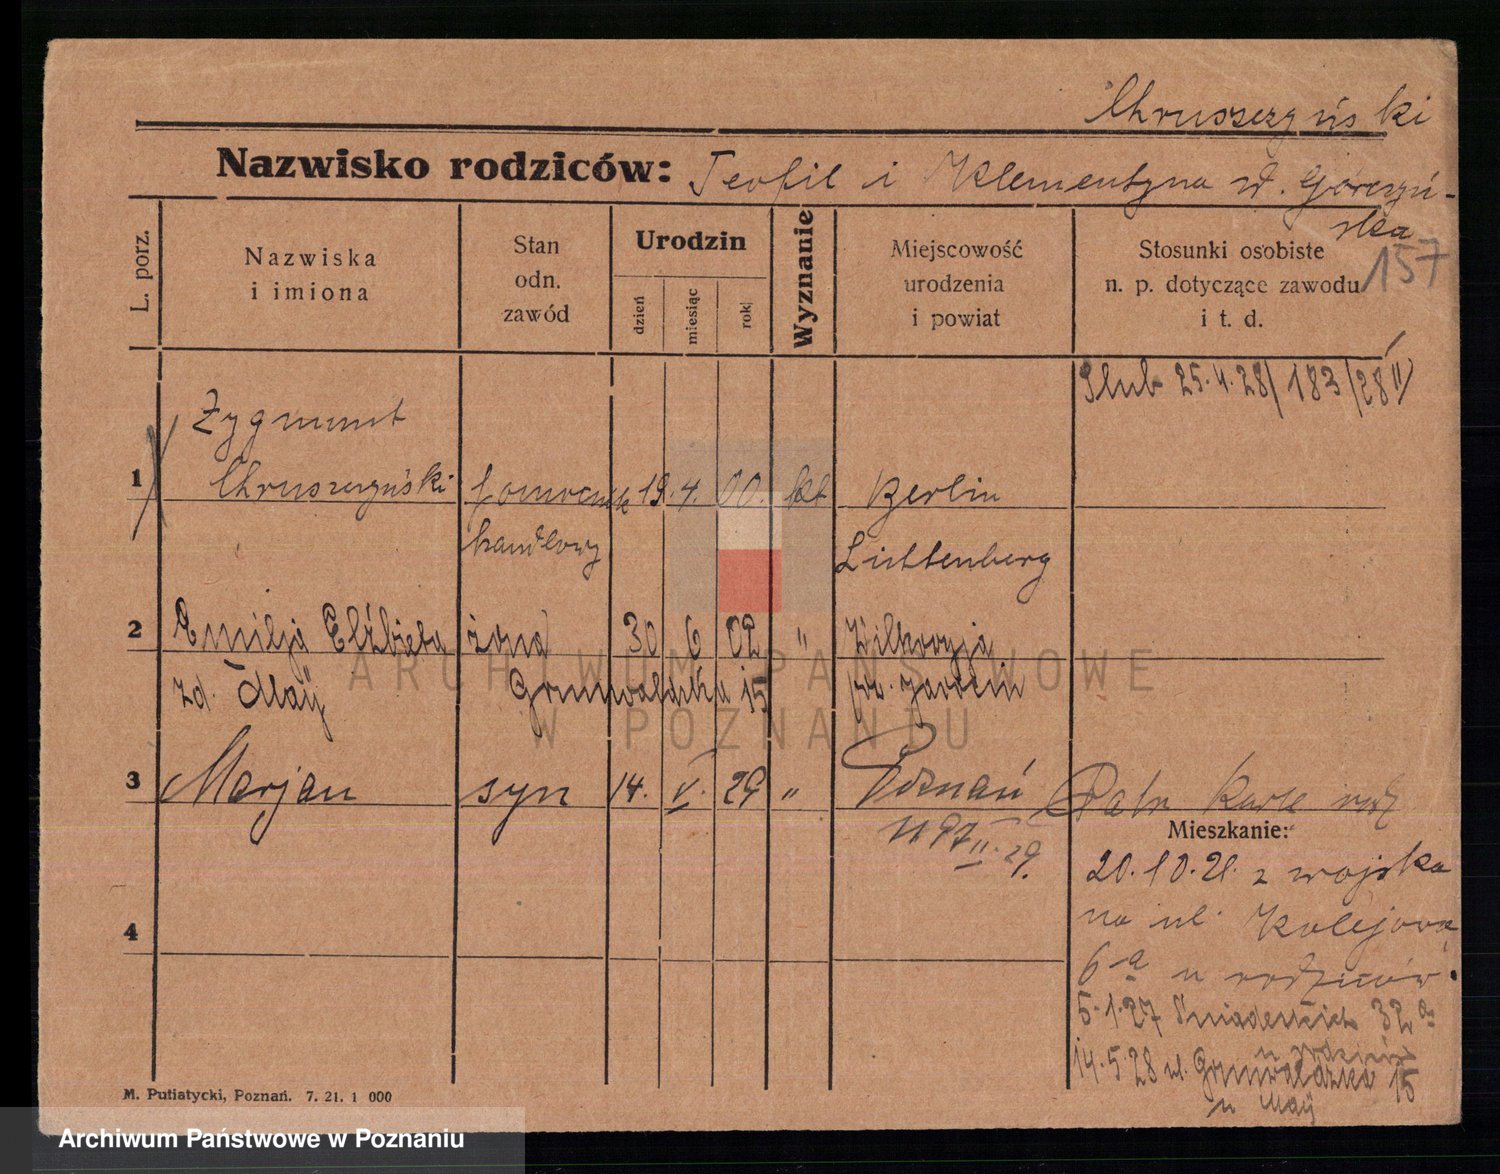 Chruszczyński
Nazwisko rodziców: Teofil i Klementyna d. Górczyń-
ska
157
L. porz.
Nazwiska
i imiona
Stan
odn.
zawód
Urodzin
dzień
miesiąc
rok
Wyznanie
Miejscowość
urodzenia
i powiat
Stosunki osobiste
n. p. dotyczące zawodu
i t. d.
Ślub 25.4.28/183/28 II
Zygmunt
1 Chruszczyński pomocnik 19. 4. 00. kt Berlin
handlowy Lichtenberg
2 Emilja Elżbieta żona 30 6 02 " Wilkowyja
zd. May Grunwaldzka 15 pw. Jarocin
3 Marjan syn 14. V. 29 " Poznań
1197 II. 29.
Mieszkanie:
20.10.21. z wojska
na ul. Kolejowa
6 a u rodziców.
5.1.27 Śniadeckich 32 a
u rodziców
14.5.28 ul. Grunwaldzka 15
u May
4
M. Putiatycki, Poznań. 7. 21. 1 000
ARCHIWUM PAŃSTWOWE
W POZNANIU
Archiwum Państwowe w Poznaniu